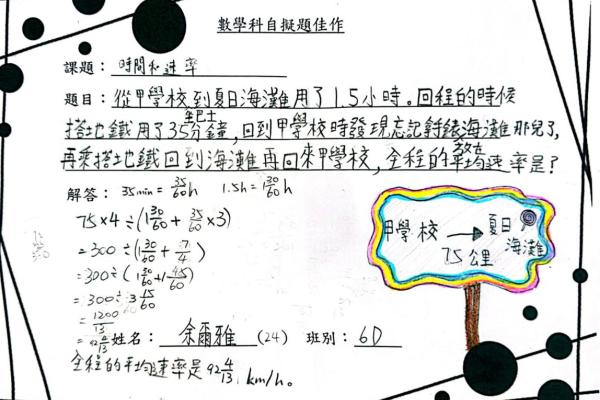 數學科自擬題佳作
課題：時間和速率
題目：從甲學校到夏日海灘坐巴士用了1.5小時。回程的時候
搭地鐵用了35分鐘，回到甲學校時發現忘記將錶海灘那兒了，
再乘搭地鐵回到海灘再回來甲學校，全程的平均速率是？
解答：35min = 35/60 h 1.5h = 1 30/60 h
75×4÷(1 30/60 + 35/60 ×3)
=300÷(1 30/60 + 7/4)
=300÷(1 30/60 + 1 45/60)
=300÷3 15/60
=1200/13
=92 4/13
姓名：余爾雅 (24) 班別：6D
全程的平均速率是92 4/13 km/h。
甲學校 → 夏日海灘
75公里